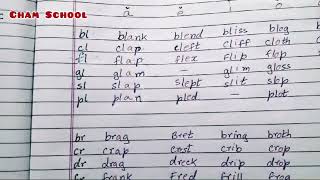 Cham School
ă ĕ ĭ ŏ
bl blank blend bliss blog
cl clap cleft cliff cloth
fl flap flex flip flop
gl glam – glim gloss
sl slap slept slit
pl plan pled – plot
br brag Bret bring broth
cr crap crest crib crop
dr drag dreck drip drop
fr frank Fred frill frog